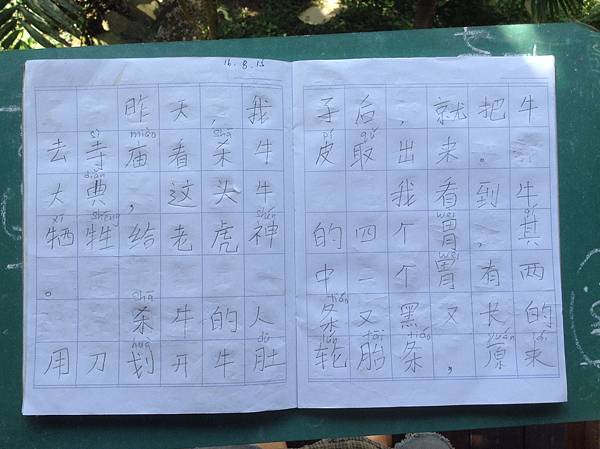 16.8.15
昨天，我
sì miào shā
去寺庙看杀牛
diǎn
大典，这头牛
xī shēng shén
牺牲给老虎神
。
shā
杀牛的人
huá dù
用刀划开牛肚
子后，就把牛
pí qǔ
皮取出来。
我看到牛
wèi qí
的四个胃，其
wèi
中一个胃有两
tiáo
条又黑又长的
lún tāi tiáo yuán lái
轮胎条，原来